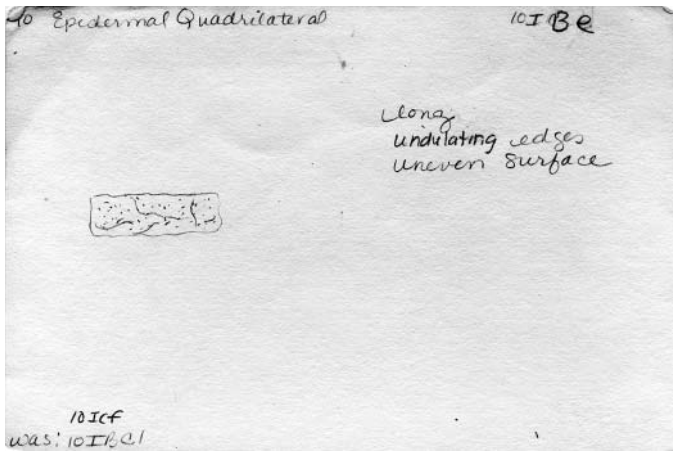 10 Epidermal Quadrilateral
10I Be
long
undulating edges
uneven surface
10Icf
was: 10IBC1